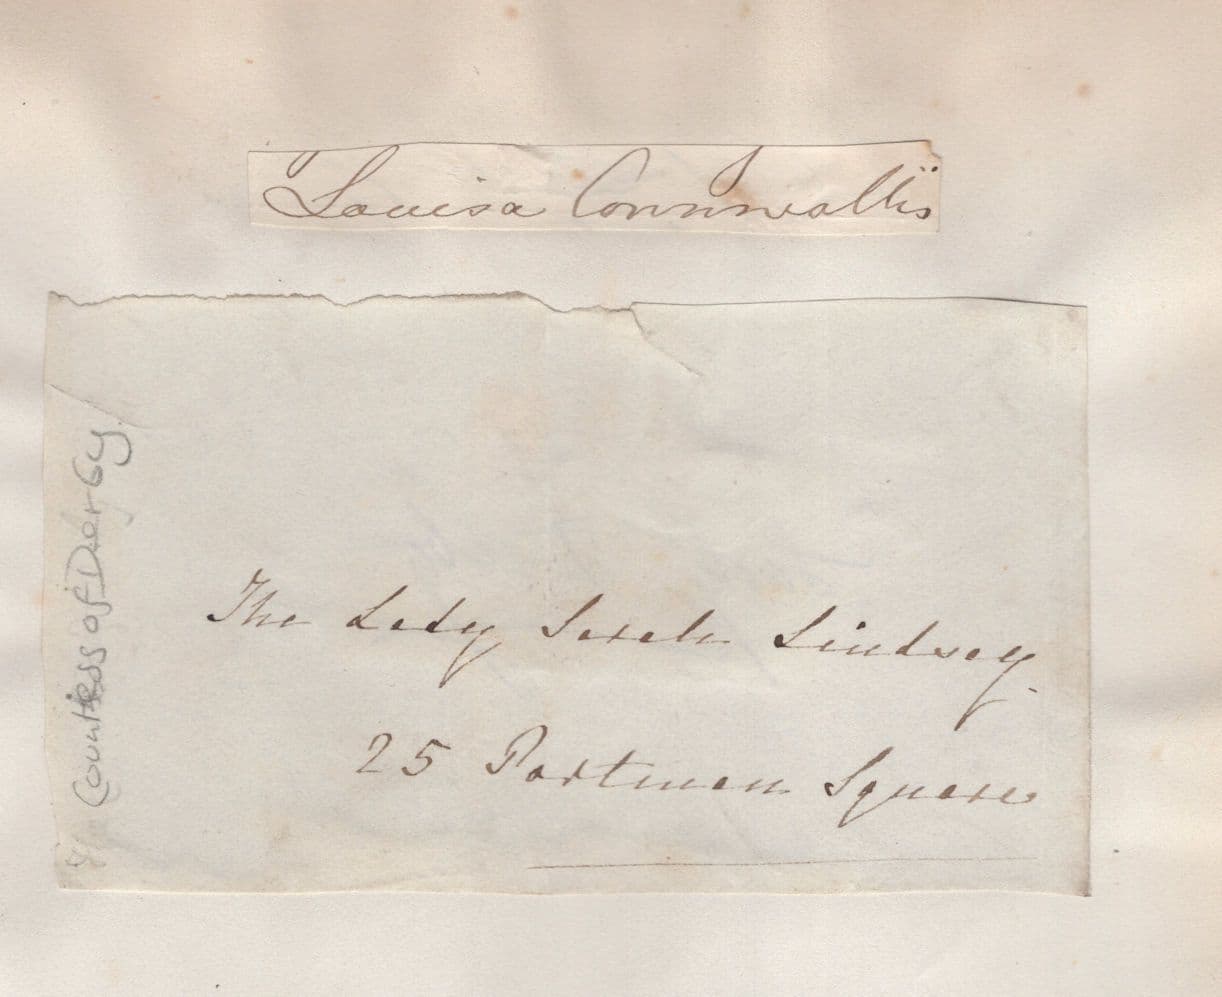 Louisa Cornwallis
The Lady Sarah Lindsay
25 Portman Square
Countess of Derby